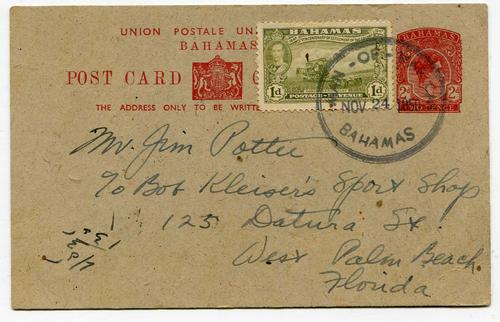 UNION POSTALE UN
BAHAMAS
POST CARD
THE ADDRESS ONLY TO BE WRITTE
BAHAMAS
1d 1d
POSTAGE REVENUE
BAHAMAS
2d 2d
NOV 24
BAHAMAS
Mr. Jim Potter
c/o Bob Kleiser's Sport Shop
125 Datura St.
West Palm Beach
Florida